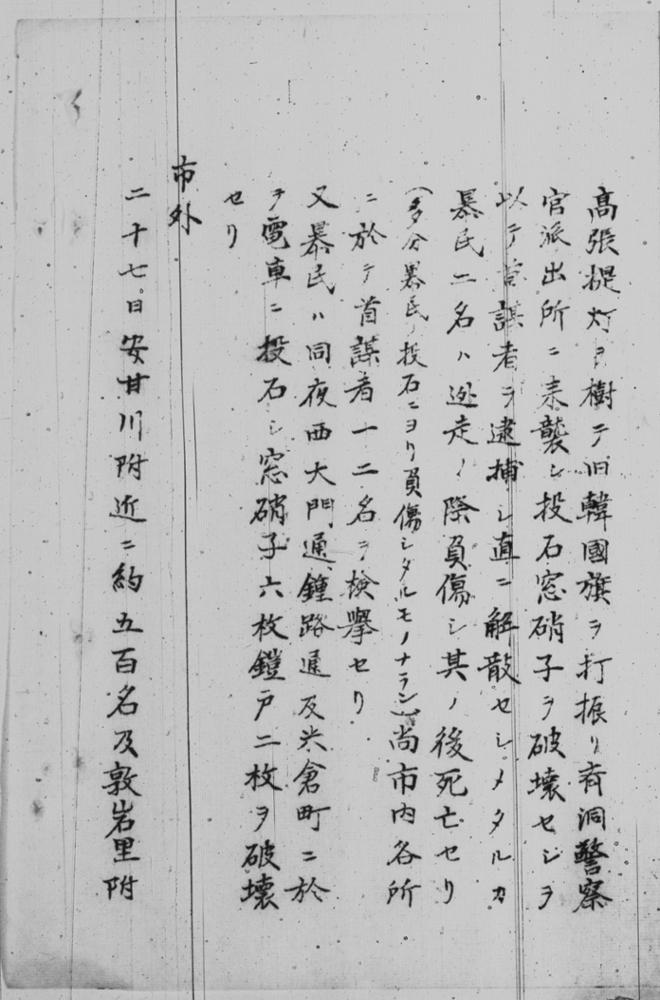 高張提灯ヲ樹テ旧韓國旗ヲ打振リ斉洞警察
官派出所ニ来襲シ投石窓硝子ヲ破壊セシヲ
以テ首謀者ヲ逮捕シ直ニ解散セシメタルカ
暴民二名ハ逃走ノ際負傷シ其ノ後死亡セリ
(多分暴民ノ投石ニヨリ負傷シタルモノナラン)尚市内各所
ニ於テ首謀者一二名ヲ検挙セリ
又暴民ハ同夜西大門通鍾路通及米倉町ニ於
テ電車ニ投石シ窓硝子六枚鎧戸二枚ヲ破壊
セリ
市外
二十七日安甘川附近ニ約五百名及敦岩里附